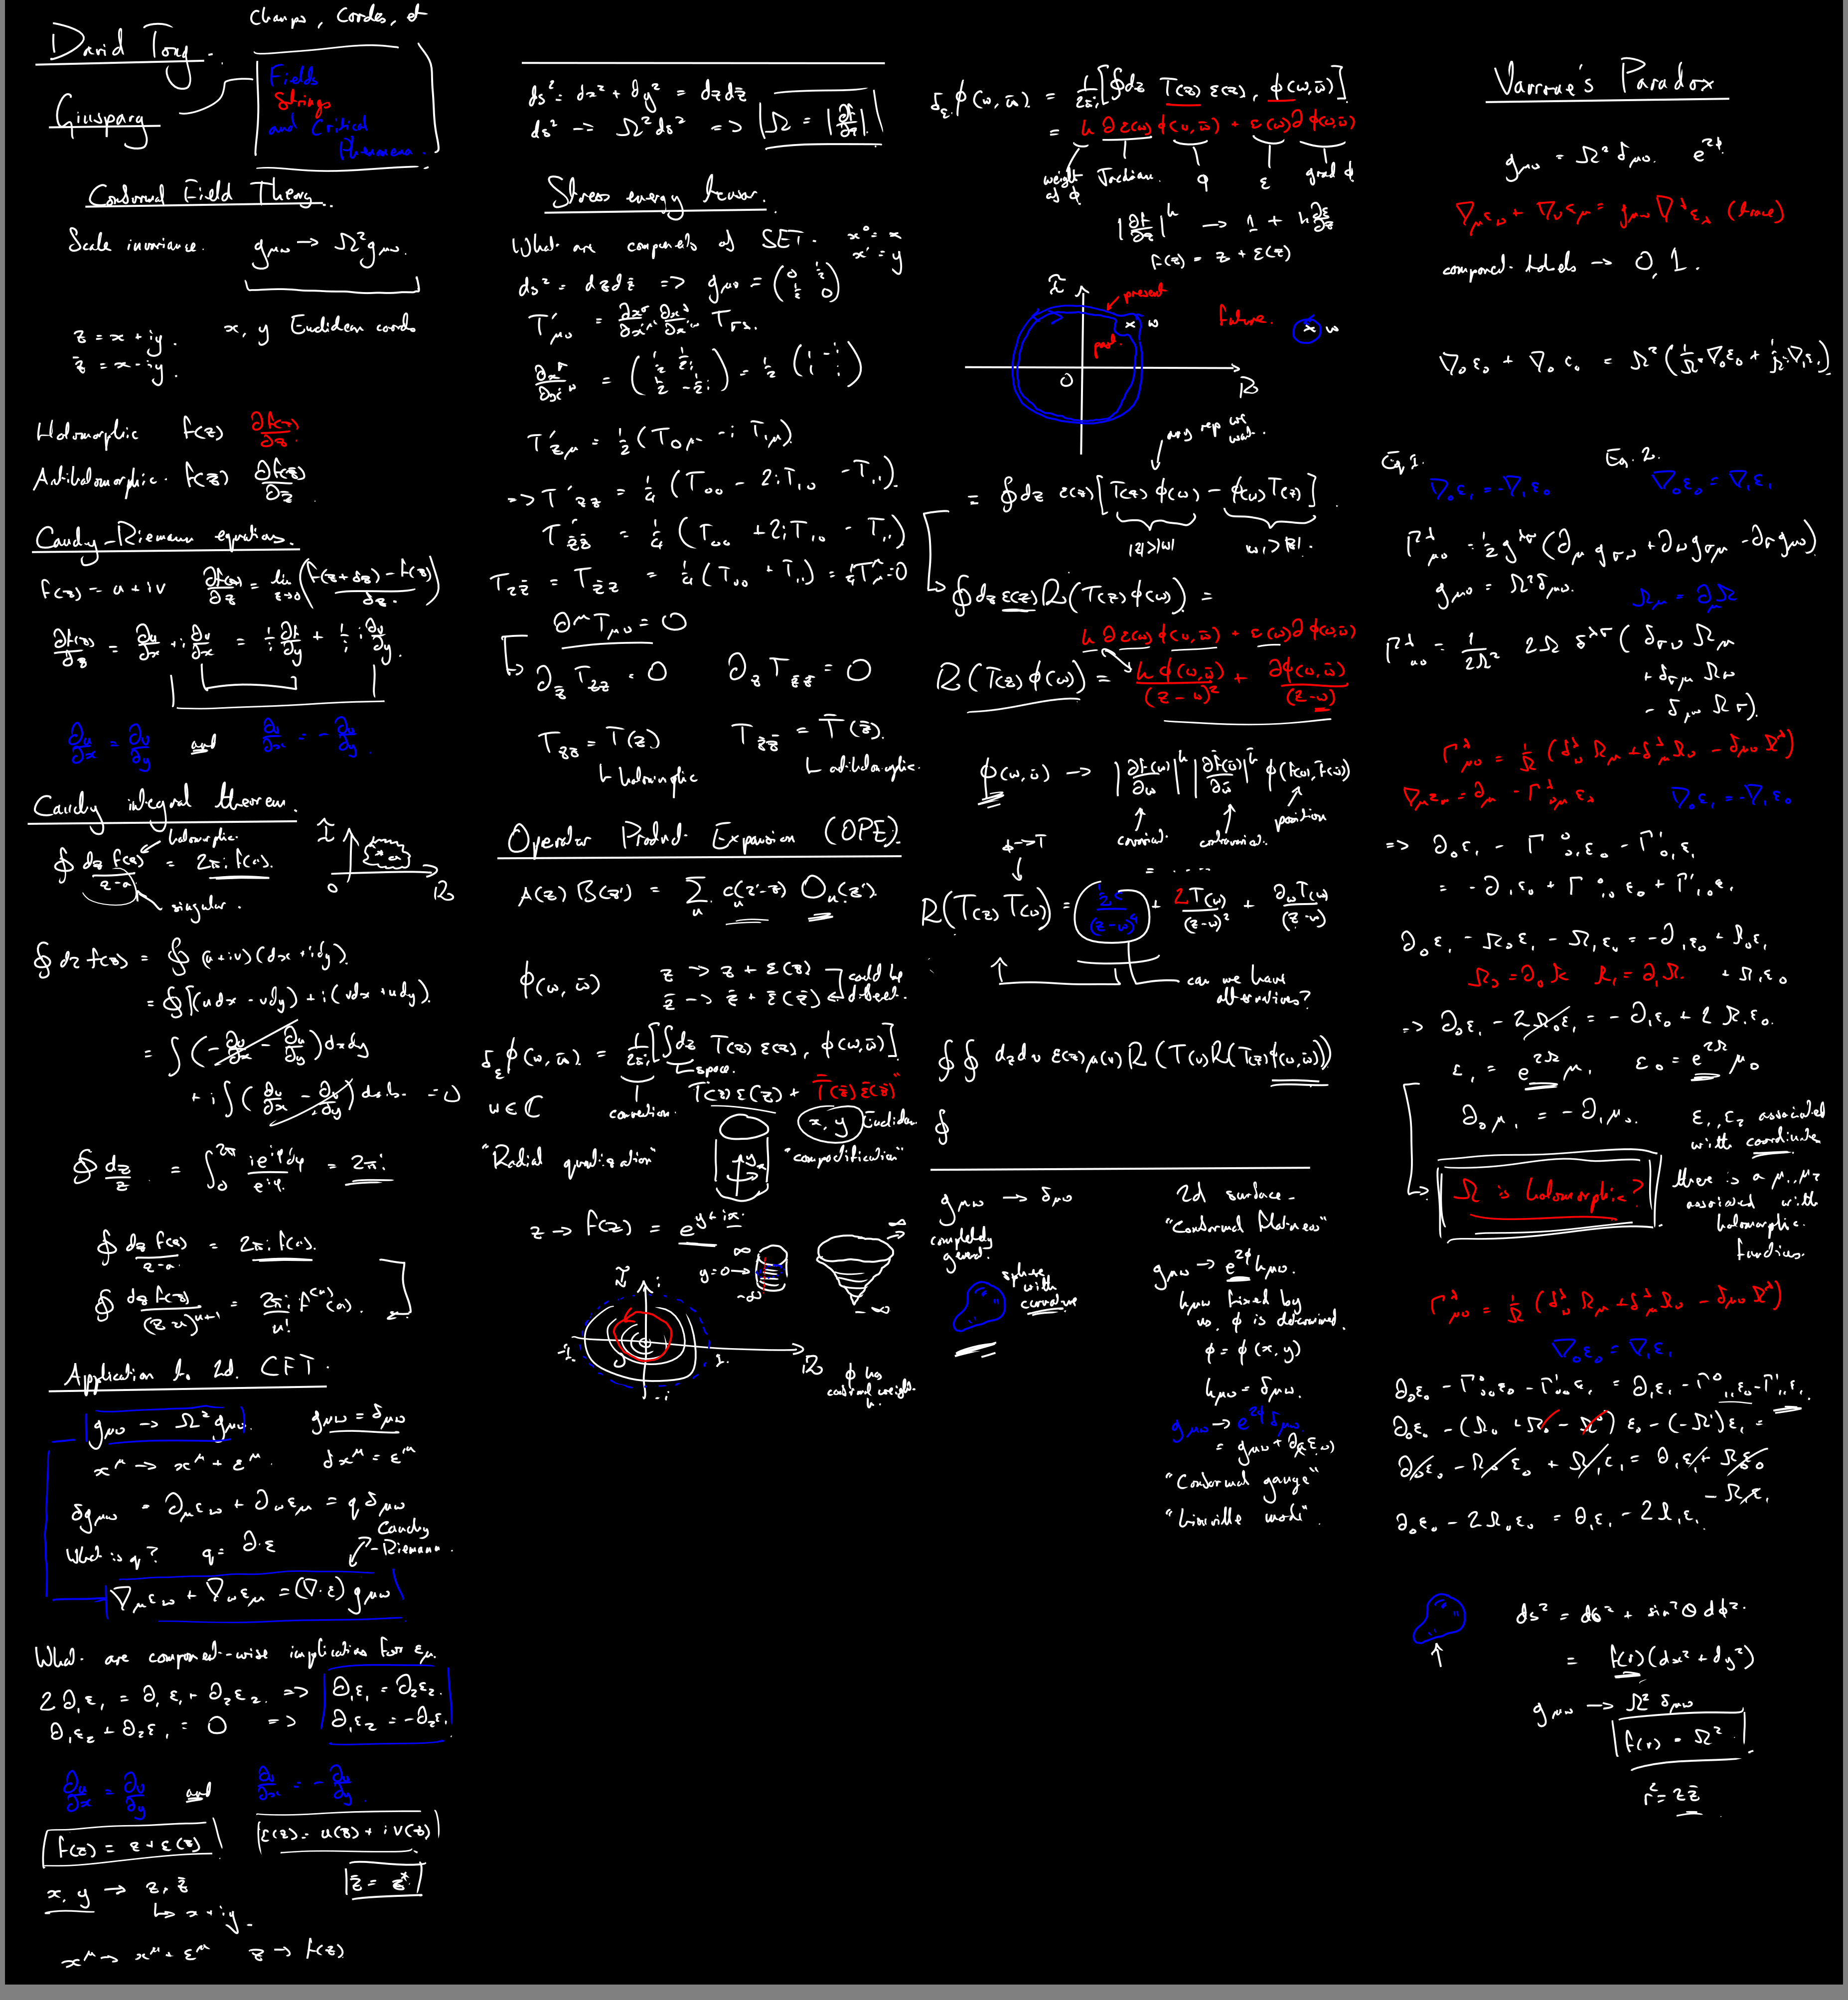 David Tong.
Ginsparg
Champs, Cordes, et
Fields
Strings
and Critical
Phenomena.
Conformal Field Theory.
Scale invariance. gμν → Ω²gμν.
z = x + iy.
z̄ = x - iy.
x, y Euclidean coords
Holomorphic f(z) ∂f(z)/∂z.
Antiholomorphic. f(z̄) ∂f(z̄)/∂z̄.
Cauchy-Riemann equations.
f(z) = u + iv ∂f(z)/∂z = lim ε→0 (f(z+δz) - f(z))/δz.
∂f(z)/∂z = ∂u/∂x + i ∂v/∂x = 1/i ∂f/∂y + 1/i i ∂v/∂y.
∂u/∂x = ∂v/∂y and ∂v/∂x = -∂u/∂y.
Cauchy integral theorem.
holomorphic.
∮ dz f(z)/(z-a) = 2πi f(a).
singular.
∮ dz f(z) = ∮ (u+iv)(dx+idy).
= ∮[(udx - vdy) + i(vdx + udy).
= ∫(-∂v/∂x - ∂u/∂y)dxdy
+ i∫(∂u/∂x - ∂v/∂y)dxdy = 0
∮ dz/z = ∫₀^2π ie^iφ dφ/e^iφ = 2πi
∮ dz f(z)/(z-a) = 2πi f(a).
∮ dz f(z)/(z-a)^n+1 = 2πi/n! f^(n)(a).
Application to 2d. CFT.
gμν → Ω² gμν. gμν = δμν
x^μ → x^μ + ε^μ. δx^μ = ε^μ
δgμν = ∂μεν + ∂νεμ = q δμν
What is q? q = ∂·ε
Cauchy
-Riemann.
∇μεν + ∇νεμ = (∇·ε) gμν
What are component-wise implications for εμ.
2∂₁ε₁ = ∂₁ε₁ + ∂₂ε₂. => ∂₁ε₁ = ∂₂ε₂.
∂₁ε₂ + ∂₂ε₁ = 0 => ∂₁ε₂ = -∂₂ε₁
∂u/∂x = ∂v/∂y and ∂v/∂x = -∂u/∂y.
f(z) = z + ε(z) ε(z) = u(z) + iv(z)
x, y → z, z̄ z̄ = z*
↳ x + iy.
x^μ → x^μ + ε^μ z → f(z)
ds² = dx² + dy² = dzdz̄
ds² → Ω²ds² => Ω = |∂f/∂z|.
Stress energy tensor.
What are components of SET. x⁰ = x
x¹ = y
ds² = dzdz̄ => gμν = (0 ½ ½ 0)
T'μν = ∂x^σ/∂x'^μ ∂x^ρ/∂x'^ν Tσρ.
∂x^σ/∂x'^ν = (½ 1/2i ½ -1/2i) = ½ (1 -i 1 i)
T'zμ = ½(T0μ - iT1μ)
=> T'zz = ¼(T₀₀ - 2iT₁₀ - T₁₁).
T'z̄z̄ = ¼(T₀₀ + 2iT₁₀ - T₁₁)
Tzz̄ = Tz̄z = ¼(T₀₀ + T₁₁) = ¼T^μμ = 0
∂^μTμν = 0
∂z̄Tzz = 0 ∂zTz̄z̄ = 0
Tzz = T(z) Tz̄z̄ = T̄(z̄).
↳ holomorphic ↳ antiholomorphic.
Operator Product Expansion (OPE).
A(z) B(z') = Σn cn(z'-z) On(z').
φ(w, w̄) z → z + ε(z)
z̄ → z̄ + ε̄(z̄)
could be
different.
δεφ(w, w̄) = 1/2πi [∫dz T(z)ε(z), φ(w,w̄)].
space.
w ∈ ℂ convention. T(z)ε(z) + T̄(z̄)ε̄(z̄)"
x, y Euclidean
"Radial quantisation" "compactification"
z → f(z) = e^y+ix.
y=0→ ∞ -∞
∞
-∞
-1 1. i -i
φ has
conformal weight
h.
δεφ(w, w̄) = 1/2πi [∮dz T(z)ε(z), φ(w,w̄)].
= h∂ε(w)φ(w,w̄) + ε(w)∂φ(w,w̄)
weight
of φ
Jacobian. φ ε grad φ
|∂f/∂z|^h → 1 + h∂ε/∂z
f(z) = z + ε(z)
present
x w
past.
future.
x w
0
ℝ
any rep we
want.
= ∮dz ε(z)[T(z)φ(w) - φ(w)T(z)].
|z|>|w| |w|>|z|.
∮dz ε(z)R(T(z)φ(w)) =
h∂ε(w)φ(w,w̄) + ε(w)∂φ(w,w̄)
R(T(z)φ(w)) = hφ(w,w̄)/(z-w)² + ∂φ(w,w̄)/(z-w)
φ(w,w̄) → |∂f(w)/∂w|^h |∂f̄(w̄)/∂w̄|^h̄ φ(f(w), f̄(w̄))
position
φ→T
= ....
R(T(z)T(w)) = ½c/(z-w)⁴ + 2T(w)/(z-w)² + ∂wT(w)/(z-w)
can we have
alternatives?
∮∮ dzdv ε(z)μ(v)R(T(v)R(T(z)φ(w,w̄)))
∮
gμν → δμν
completely
general.
sphere
with
curvature
2d surface -
"Conformal flatness"
gμν → e^2φ hμν.
hμν fixed by
us. φ is determined.
φ = φ(x,y)
hμν = δμν.
gμν → e^2φ δμν.
= gμν + ∂(μεν)
"Conformal gauge"
"Liouville mode".
Varrone's Paradox
gμν = Ω²δμν. e^2φ
∇μεν + ∇νεμ = gμν∇^λελ (trace)
component labels → 0, 1.
∇₀ε₀ + ∇₀ε₀ = Ω²(1/Ω²∇₀ε₀ + 1/Ω²∇₁ε₁)
Eq 1. Eq. 2.
∇₀ε₁ = -∇₁ε₀ ∇₀ε₀ = ∇₁ε₁
Γ^λμν = ½g^λσ(∂μgσν + ∂νgσμ - ∂σgμν)
gμν = Ω²δμν. Ωμ = ∂μΩ
Γ^λμν = 1/2Ω² 2Ω δ^λσ(δσνΩμ
+ δσμΩν
- δμνΩσ).
Γ^λμν = 1/Ω(δ^λνΩμ + δ^λμΩν - δμνΩ^λ)
∇₀ε₁ = -∇₁ε₀
=> ∂₀ε₁ - Γ⁰₀₁ε₀ - Γ¹₀₁ε₁
= -∂₁ε₀ + Γ⁰₁₀ε₀ + Γ¹₁₀ε₁
∂₀ε₁ - Ω₀ε₁ - Ω₁ε₀ = -∂₁ε₀ + Ω₀ε₁
+ Ω₁ε₀
=> ∂₀ε₁ - 2Ω₀ε₁ = -∂₁ε₀ + 2Ω₁ε₀.
ε₁ = e^2Ω μ₁ ε₀ = e^2Ω μ₀
∂₀μ₁ = -∂₁μ₀.
ε₁, ε₂ associated
with coordinates
Ω is holomorphic?
there is a μ₁, μ₂
associated with
holomorphic
functions.
Γ^λμν = 1/Ω(δ^λνΩμ + δ^λμΩν - δμνΩ^λ)
∇₀ε₀ = ∇₁ε₁
∂₀ε₀ - Γ⁰₀₀ε₀ - Γ¹₀₀ε₁ = ∂₁ε₁ - Γ⁰₁₁ε₀ - Γ¹₁₁ε₁
∂₀ε₀ - (Ω₀ + Ω₀ - Ω⁰)ε₀ - (-Ω¹)ε₁ =
∂₀ε₀ - Ω₀ε₀ + Ω₁ε₁ = ∂₁ε₁ + Ω₀ε₀
- Ω₁ε₁
∂₀ε₀ - 2Ω₀ε₀ = ∂₁ε₁ - 2Ω₁ε₁
ds² = dθ² + sin²θ dφ².
= f(r)(dx² + dy²)
gμν → Ω²δμν
f(r) = Ω²
r² = zz̄